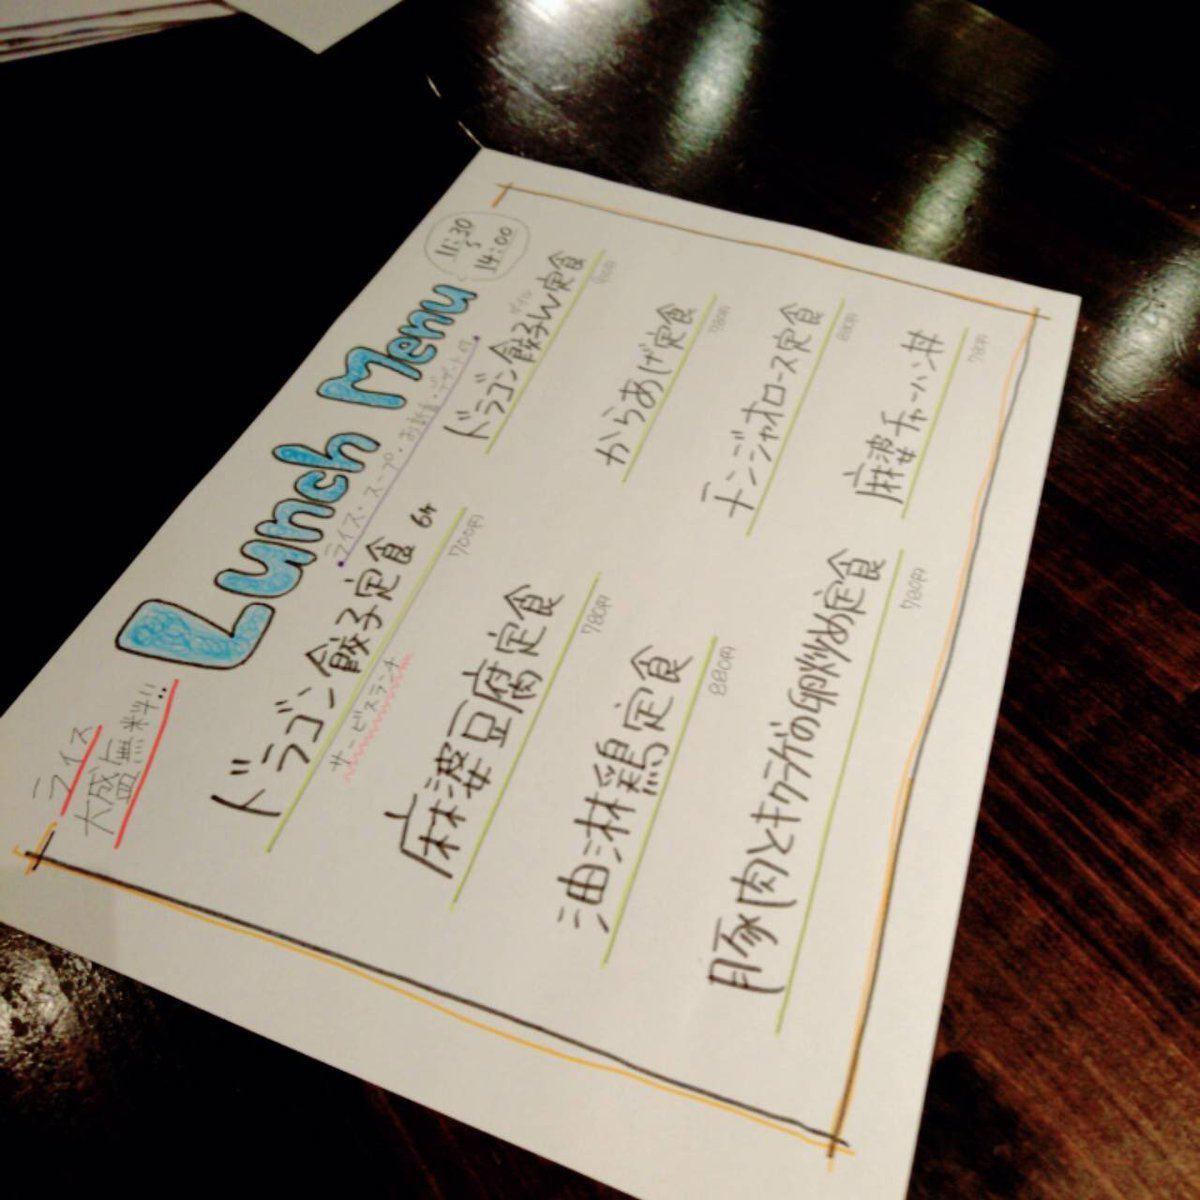 ライス
大盛無料!!
Lunch Menu
11:30
〜
14:00
・ライス・スープ・お新香・デザート付・
ドラゴン餃子定食 6ヶ
700円
サービスランチ
麻婆豆腐定食
780円
油淋鶏定食
880円
豚肉とキクラゲの卵炒め定食
780円
ボイル
ドラゴン餃子ん定食
からあげ定食
780円
チンジャオロース定食
880円
麻婆チャーハン丼
780円